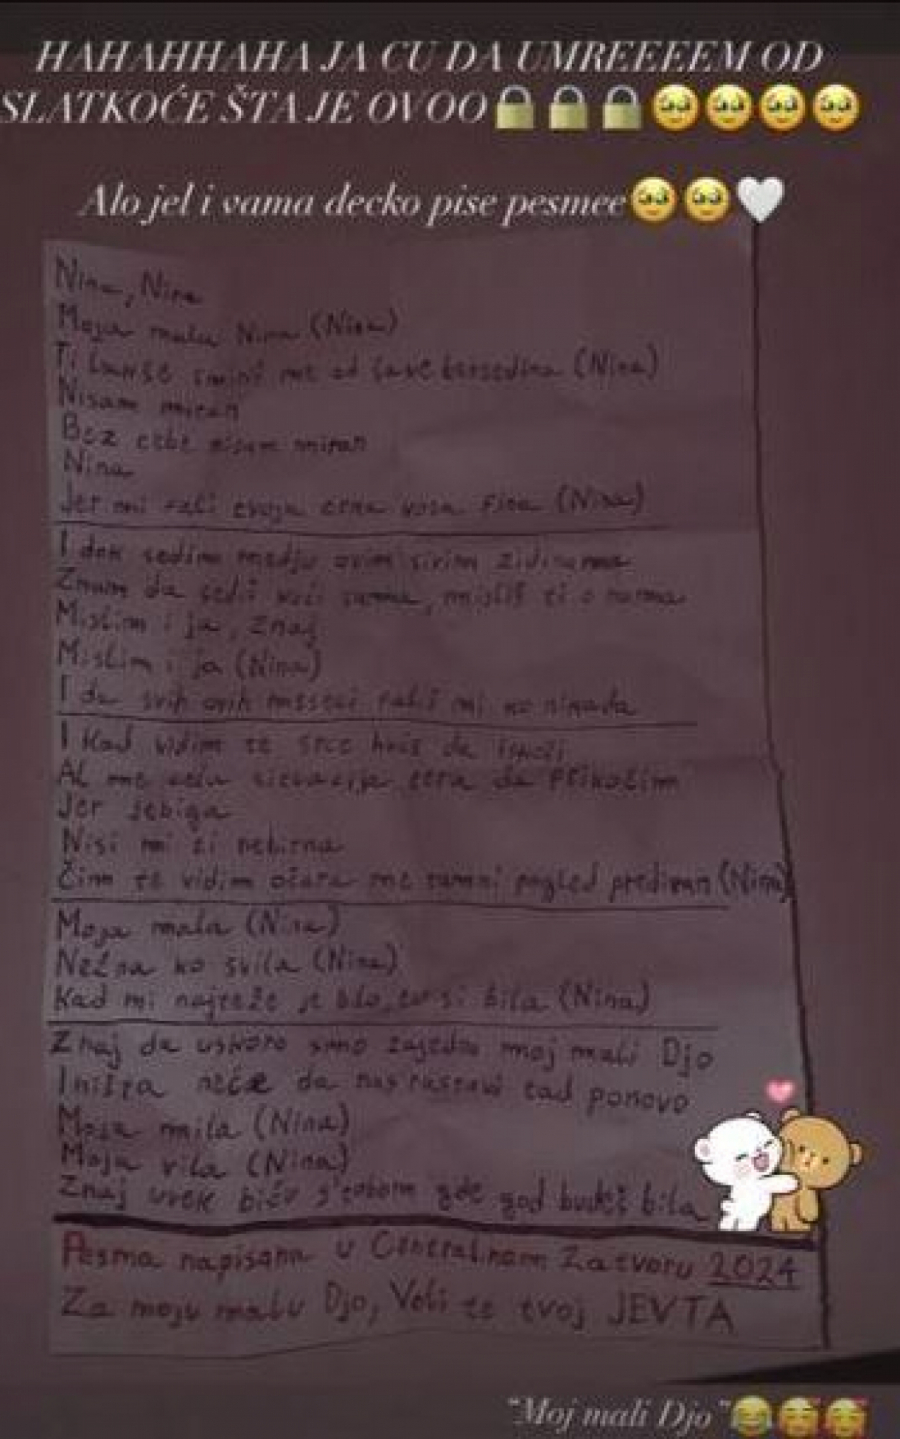 HAHAHHAHA JA CU DA UMREEEEM OD
SLATKOĆE ŠTA JE OVOO🔒🔒🔒🥹🥹🥹🥹
Alo jel i vama decko pise pesmee🥹🥹🤍
Nina, Nina
Moja mala Nina (Nina)
Ti me od (Nina)
Nisam miran
Bez tebe nisam miran
Nina
Jer mi fali tvoja crna kosa fina (Nina)
I dok sedim medju ovim sivim zidinama
Znam da sediš kući sama, misliš ti o nama
Mislim i ja, znaj
Mislim i ja (Nina)
I da svih ovih meseci fališ mi ko nikada
I kad vidim te srce hoće da iskoči
Al me cela situacija tera da prikočim
Jer jebiga
Nisi mi ti nebitna
Čim te vidim očara me tamni pogled prediван (Nina)
Moja mala (Nina)
Nežna ko svila (Nina)
Kad mi najteže je bilo, tu si bila (Nina)
Znaj da uskoro smo zajedno moj mali Djo
I ništa neće da nas rastavi tad ponovo
Moja mila (Nina)
Moja vila (Nina)
Znaj uvek biću s'tobom gde god budeš bila
Pesma napisana u Centralnom Zatvoru 2024
Za moju malu Djo, Voli te tvoj JEVTA
"Moj mali Djo"😂🥰🥰